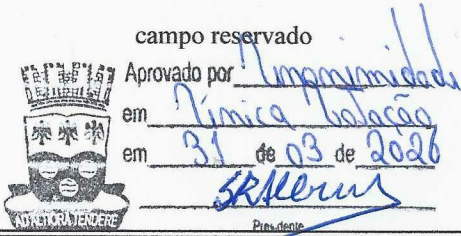 campo reservado
Aprovado por Unanimidade
em Única Votação
em 31 de 03 de 2026
Presidente